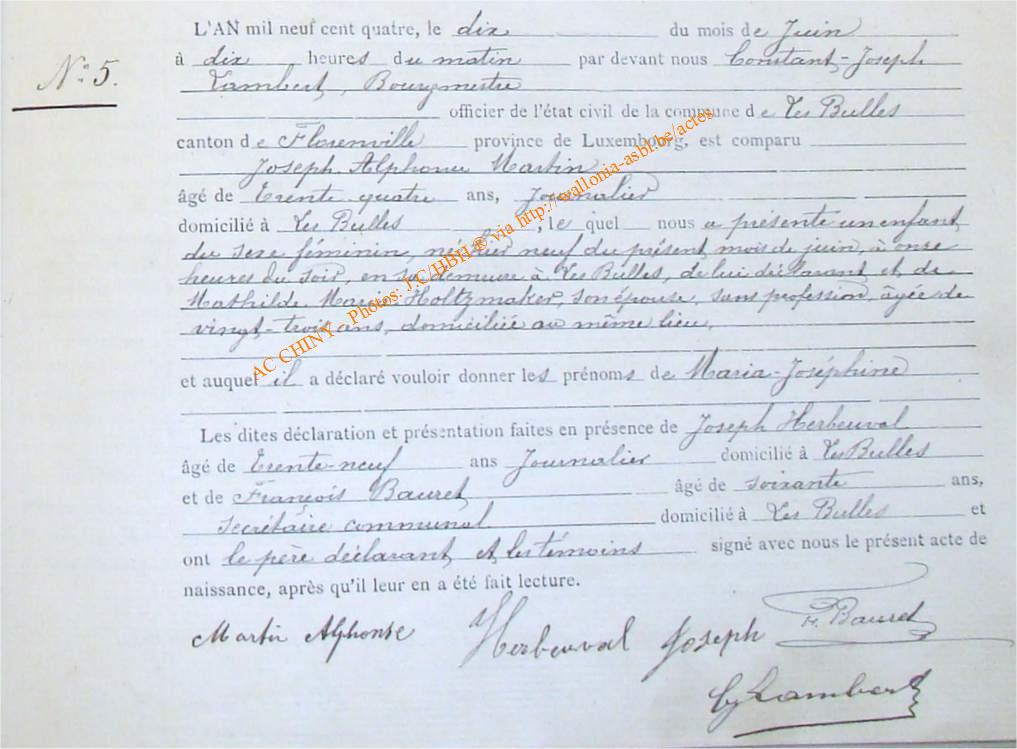 L'AN mil neuf cent quatre, le dix du mois de Juin
N° 5.
à dix heures du matin par devant nous Constant-Joseph
Lambert, Bourgmestre
officier de l'état civil de la commune de Les Bulles
canton de Florenville province de Luxembourg, est comparu
Joseph Alphonse Martin
âgé de Trente quatre ans, Journalier
domicilié à Les Bulles, le quel nous a présenté un enfant
du sexe féminin, né hier neuf du présent mois de juin, à onze
heures du soir, en sa demeure à Les Bulles, de lui déclarant et de
Mathilde Marie Holtzmaker, son épouse, sans profession, âgée de
vingt-trois ans, domiciliée au même lieu.
et auquel il a déclaré vouloir donner les prénoms de Maria-Joséphine
Les dites déclaration et présentation faites en présence de Joseph Herbeuval
âgé de Trente-neuf ans Journalier domicilié à Les Bulles
et de François Bauret âgé de soixante ans,
secrétaire communal domicilié à Les Bulles et
ont le père déclarant et les témoins signé avec nous le présent acte de
naissance, après qu'il leur en a été fait lecture.
Martin Alphonse Herbeuval Joseph F. Bauret
Lambert
AC CHINY - Photos: J.C/HBH ® via http://wallonia-asbl.be/actes